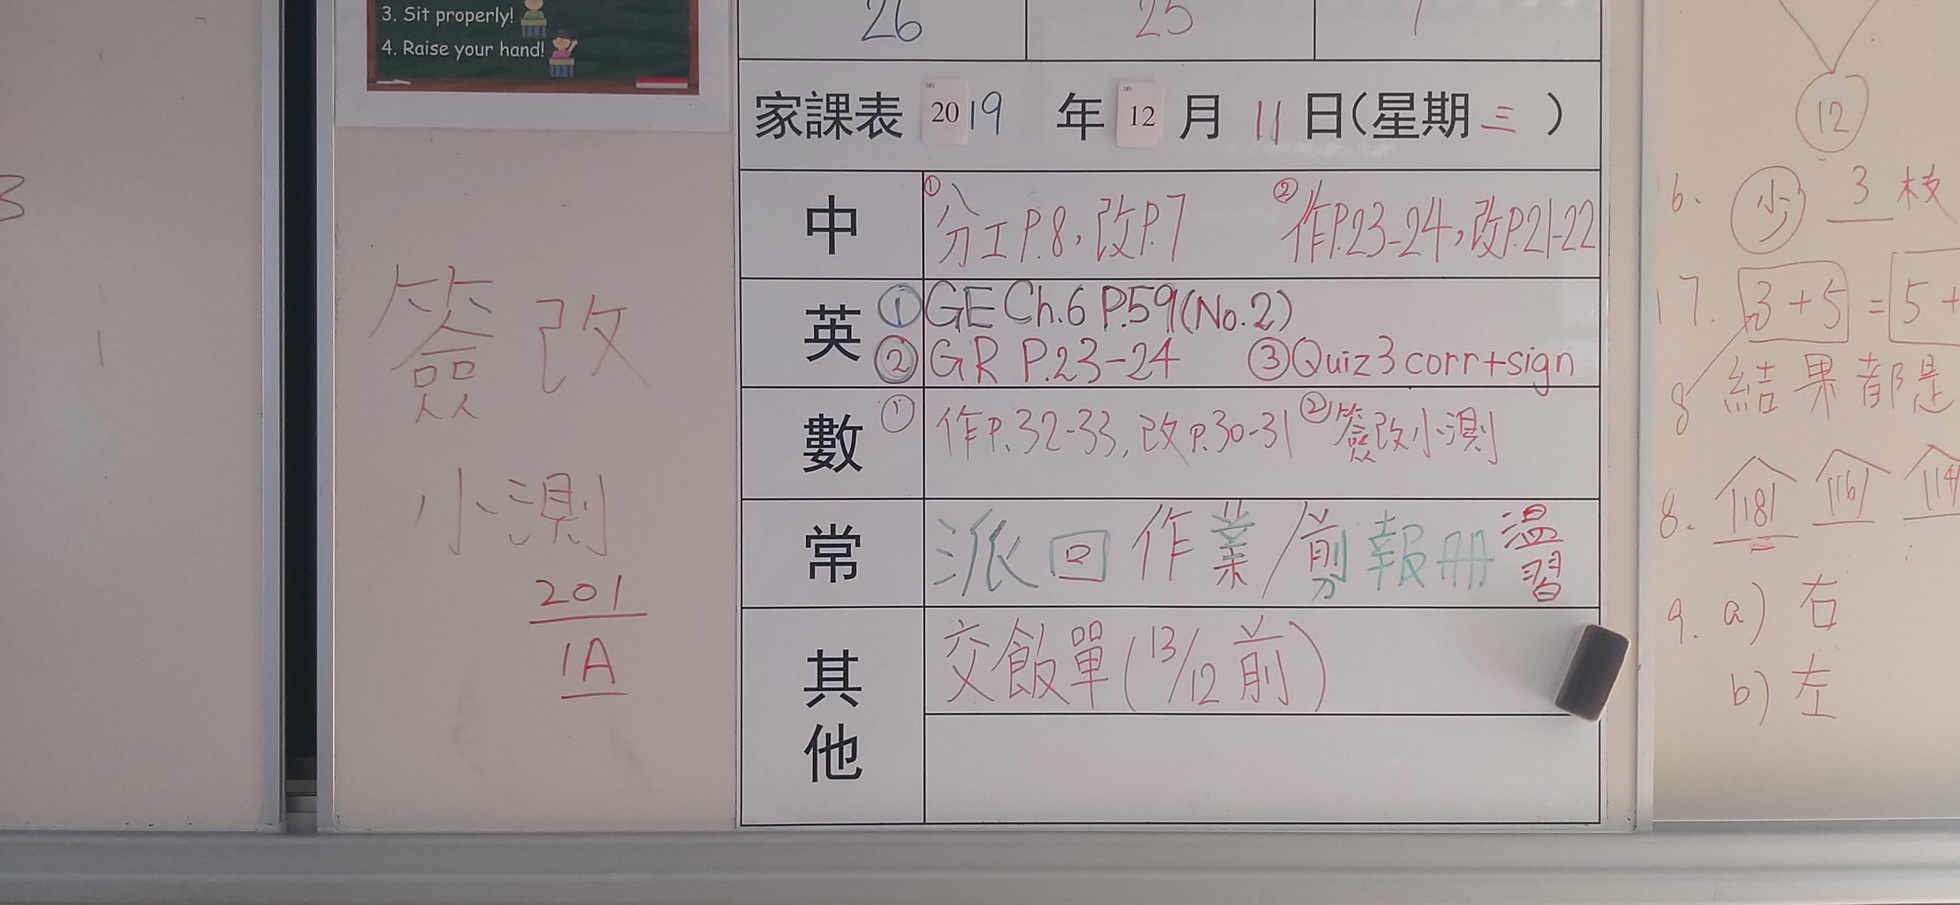 3. Sit properly!
4. Raise your hand!
26 25 1
家課表 2019 年 12 月 11 日(星期三)
中 ①分工P.8,改P.7 ②作P.23-24,改P.21-22
英 ①GE Ch.6 P.59(No.2)
②GR P.23-24 ③Quiz3 corr+sign
數 ①作P.32-33,改P.30-31 ②簽改小測
常 派回作業/剪報冊溫習
其他 交飯單(13/12前)
簽改
小測
201
1A
3
12
6. 少 3 枝
17. 3+5 = 5+
8 結果都是
8. 118 116 114
9. a) 右
b) 左